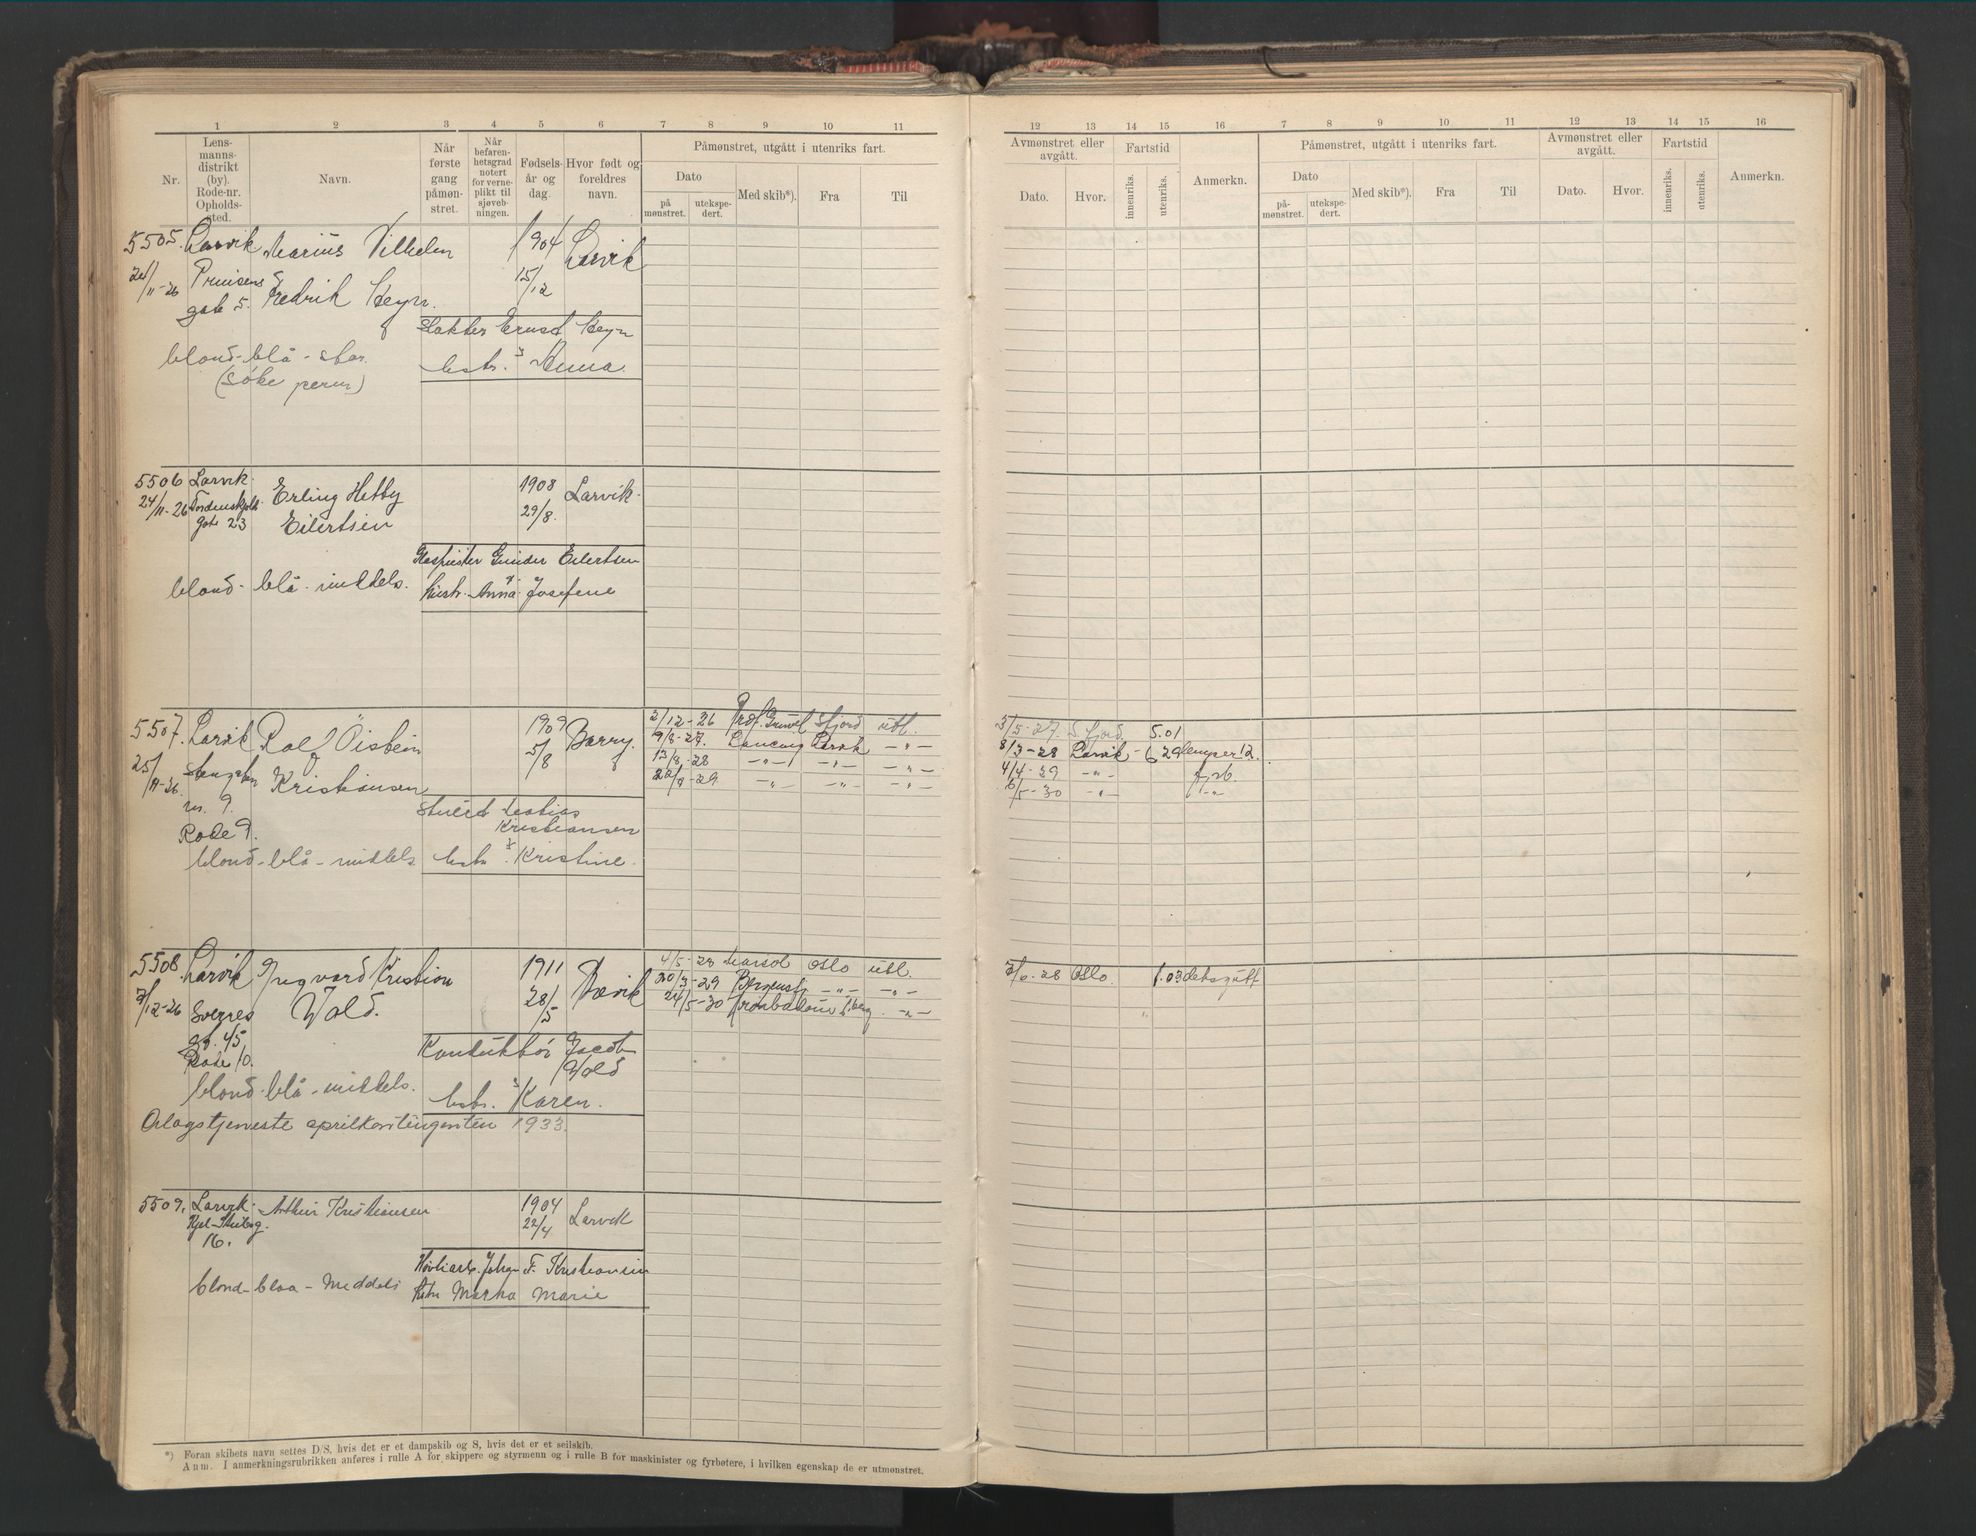 1 2 3 4 5 6 7 8 9 10 11
Nr.
Lens-
manns-
distrikt
(by).
Rode-nr.
Opholds-
sted.
Navn.
Når
første
gang
påmøn-
stret.
Når
befaren-
hetsgrad
notert
for verne-
plikt til
sjøveb-
ningen.
Fødsels-
år og
dag.
Hvor født og
foreldres
navn.
Påmønstret, utgått i utenriks fart.
Dato
på
mønstret.
utekspe-
dert.
Med skib*).
Fra
Til
12 13 14 15 16 7 8 9 10 11 12 13 14 15 16
Avmønstret eller
avgått.
Dato. Hvor.
Fartstid
innenriks.
utenriks.
Anmerkn.
Påmønstret, utgått i utenriks fart.
Dato
på-
mønstret.
utekspe-
dert.
Med skib*).
Fra
Til
Avmønstret eller
avgått.
Dato. Hvor.
Fartstid
innenriks.
utenriks.
Anmerkn.
5505. Larvik Marius Vilhelm 1904 Larvik
24/11-26 Prinsens Fredrik Heyn. 15/12
gate 5.
Slakter Ernst Heyn
blond-blå-stor. hstr. Anna
(søke perm)
5506 Larvik. Erling Hetby 1908 Larvik.
24/11-26 Tordenskjolds 29/8.
gate 23 Eilertsen
Gunder Eilertsen
blond-blå-middels. hustr. Anna Josefine
5507. Larvik Rolf Öistein 1909 2/12-26 Sfjord utl. 3/5-27. S.fjord. 5.01
25/11-26 Kristiansen 5/8 9/8-27. Larvik -"- 8/3-28 Larvik
13/8-28 -"- -"- -"- 4/4-29 -"-
22/9-29 -"- -"- -"- 6/5-30 -"-
nr. 9.
Rode 9. Kristiansen
blond-blå-middels hstr. Kristine.
5508. Larvik Ingvard Kristian 1911 4/5-28 Oslo utl. 7/6-28 Oslo. 1.03
7/12-26 Sverres Wold. 28/5 20/3-29 Bergensfj -"- -"-
24/5-30 -"-
gt. 45
Rode 10. Konduktør Jacob
Wold
blond-blå-middels. hstr. Karen.
Orlogstjeneste aprilkontingenten 1933.
5509. Larvik. Arthur Kristiansen 1904 Larvik
22/4
16.
Johan F. Kristiansen
blond-blaa-Middels hstr Marie
*) Foran skibets navn settes D/S, hvis det er et dampskib og S, hvis det er et seilskib.
Anm. I anmerkningsrubrikken anføres i rulle A for skippere og styrmenn og i rulle B for maskinister og fyrbøtere, i hvilken egenskap de er utmønstret.